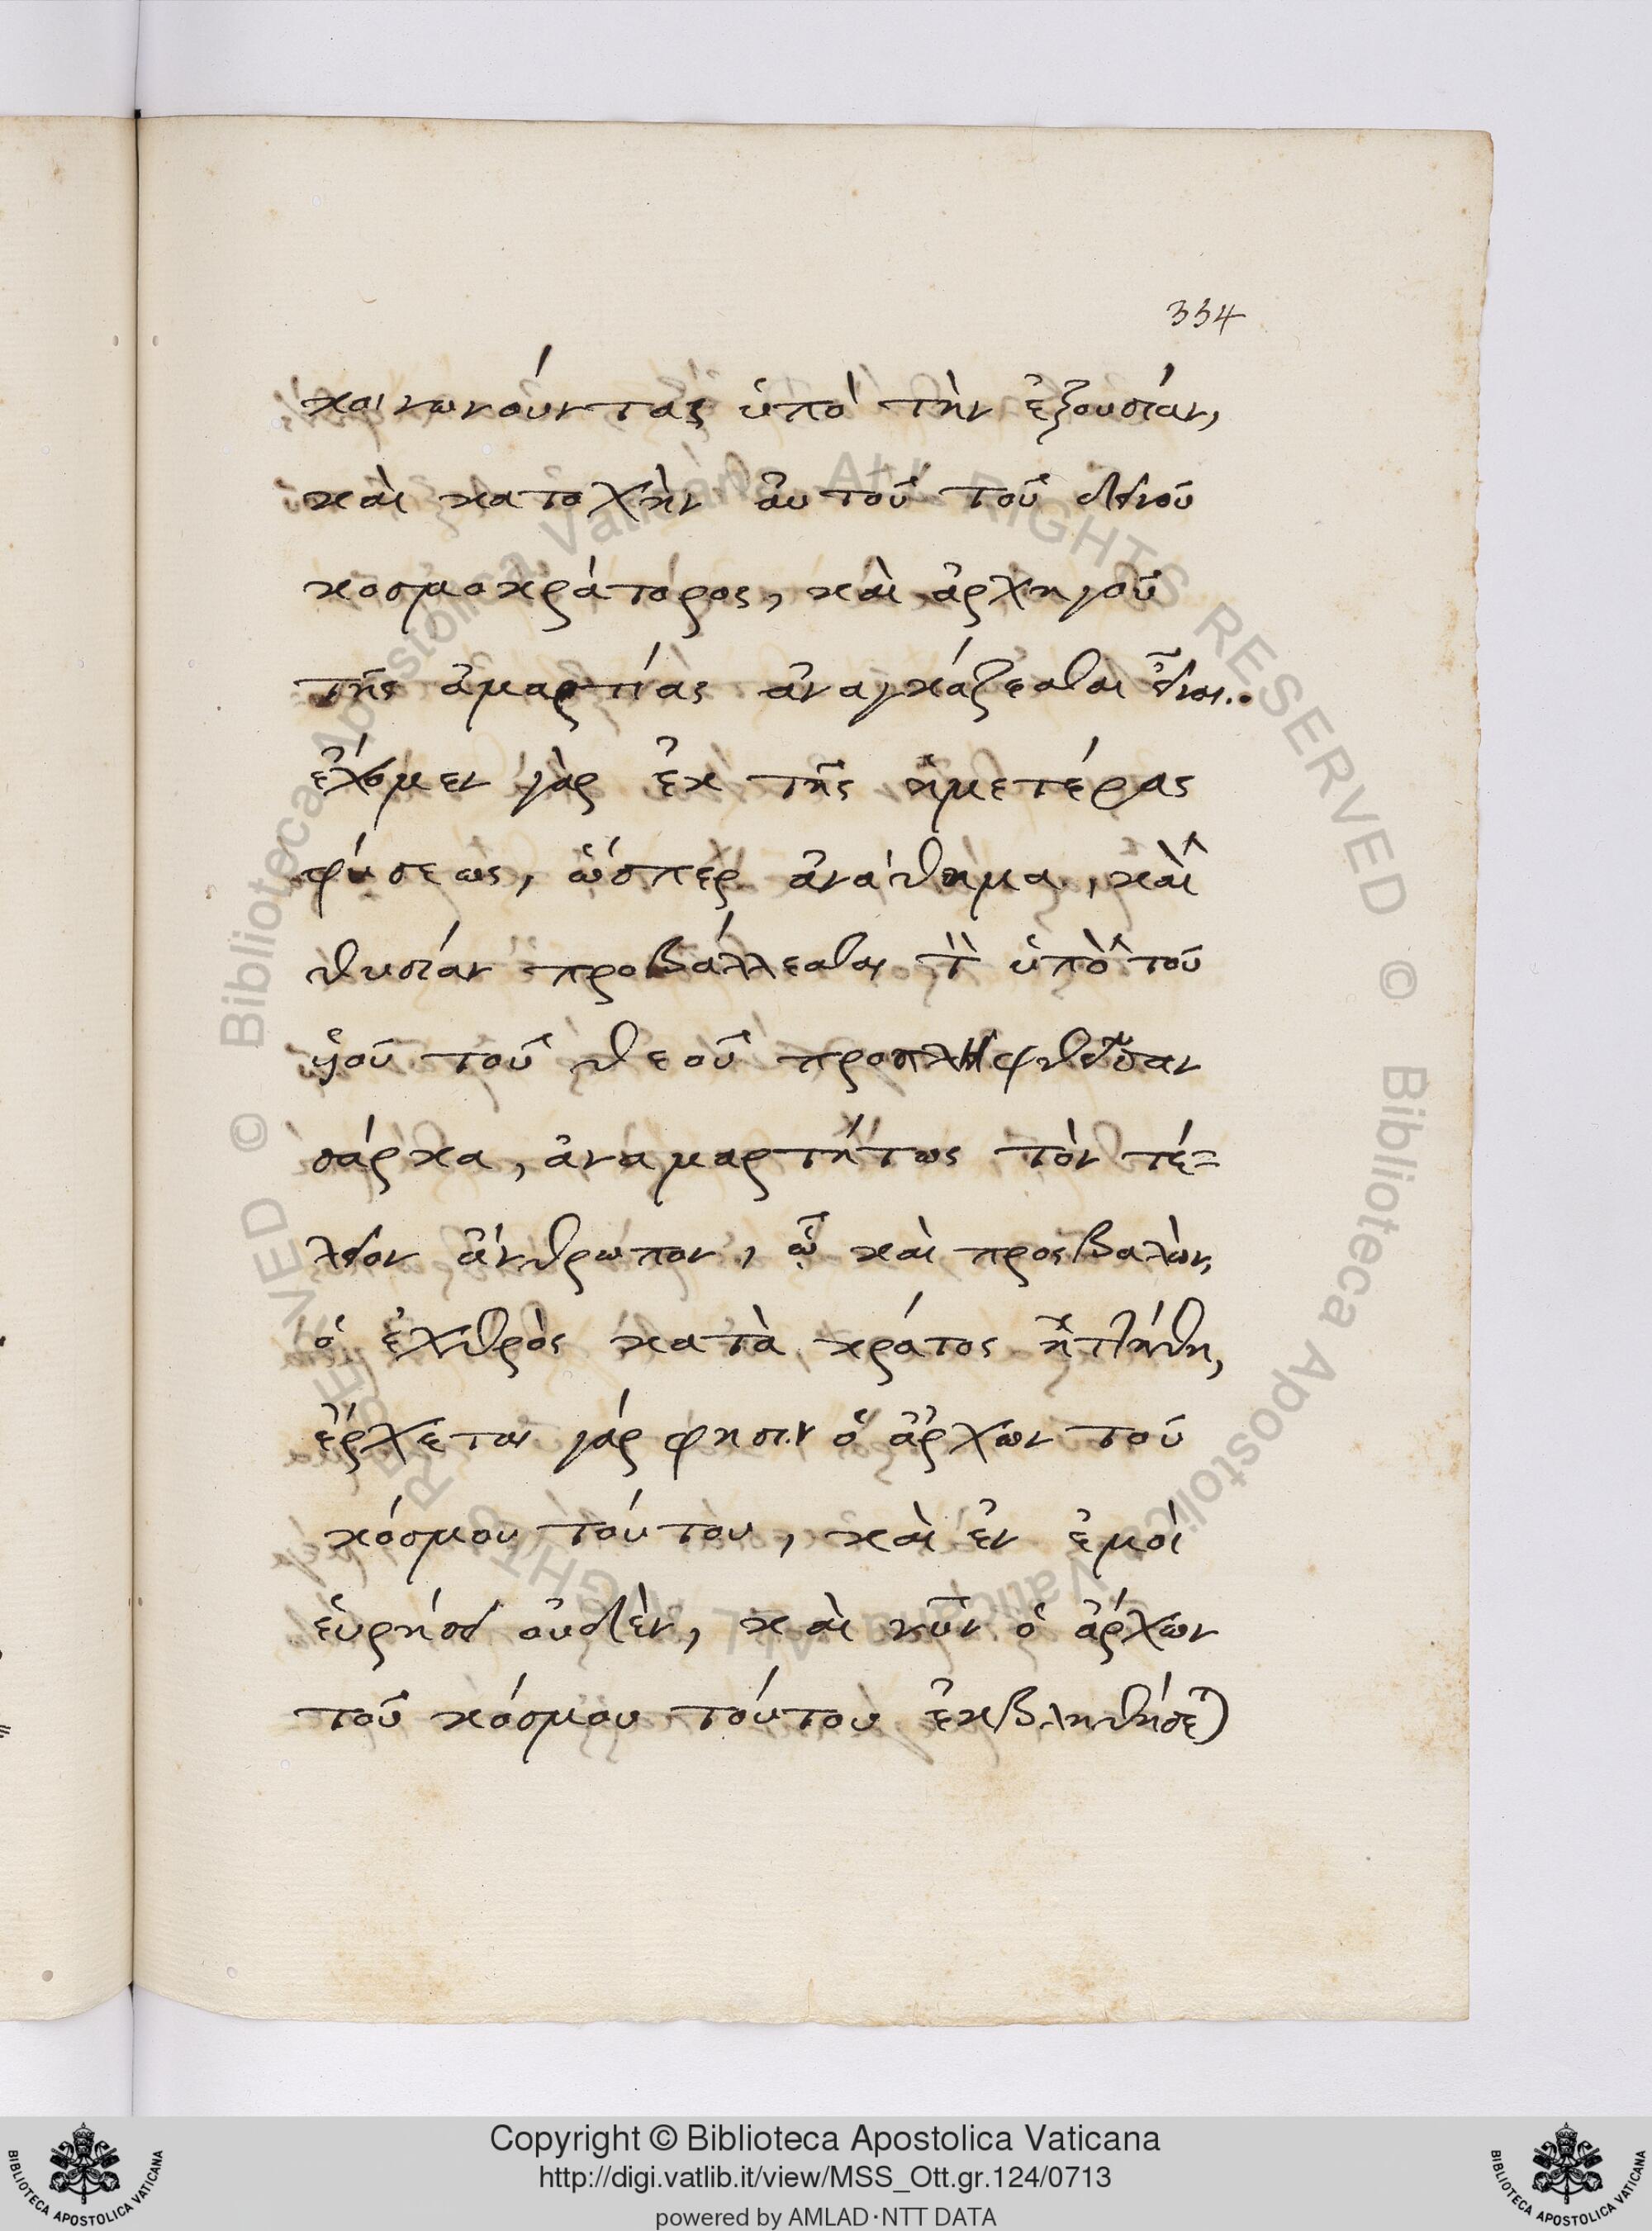 334
κοινωνούντας ὑπὸ τὴν ἐξουσίαν,
καὶ κατοχὴν ἀυτοῦ τοῦ δεινού
κοσμοκράτορος, καὶ ἀρχηγοῦ
τῆς ἁμαρτίας ἀναγκάζεσθαι εἶναι..
ἔχομεν γὰρ ἐκ τῆς ἡμετέρας
φύσεως, ὥσπερ ἀνάθημα, καὶ
θυσίαν προβάλλεσθαι τὴν ὑπὸ τού
υἱού τοῦ θεοῦ προσληφθεῖσαν
σάρκα, ἀναμαρτήτως τὸν τέ=
λειον ἄνθρωπον, ᾧ καὶ προςβαλὼν,
ὁ ἐχθρὸς κατὰ κράτος ἡττήθη,
ἔρχεται γάρ φησιν ὁ ἄρχων τού
κόσμου τούτου, καὶ ἐν ἐμοὶ
ἑυρήσει οὐδὲν, καὶ νῦν ὁ ἄρχων
τοῦ κόσμου τούτου ἐκβληθήσε)
Copyright © Biblioteca Apostolica Vaticana
http://digi.vatlib.it/view/MSS_Ott.gr.124/0713
powered by AMLAD·NTT DATA
BIBLIOTECA APOSTOLICA VATICANA
BIBLIOTECA APOSTOLICA VATICANA
© Biblioteca Apostolica Vaticana ALL RIGHTS RESERVED © Biblioteca Apostolica Vaticana ALL RIGHTS RESERVED